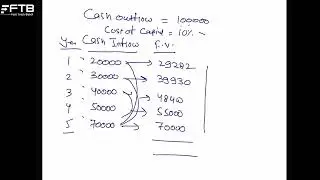 FTB
Cash outflow = 100000
Cost of Capital = 10%
Year Cash Inflow F.V.
1 20000 29282
2 30000 39930
3 40000 48400
4 50000 55000
5 70000 70000